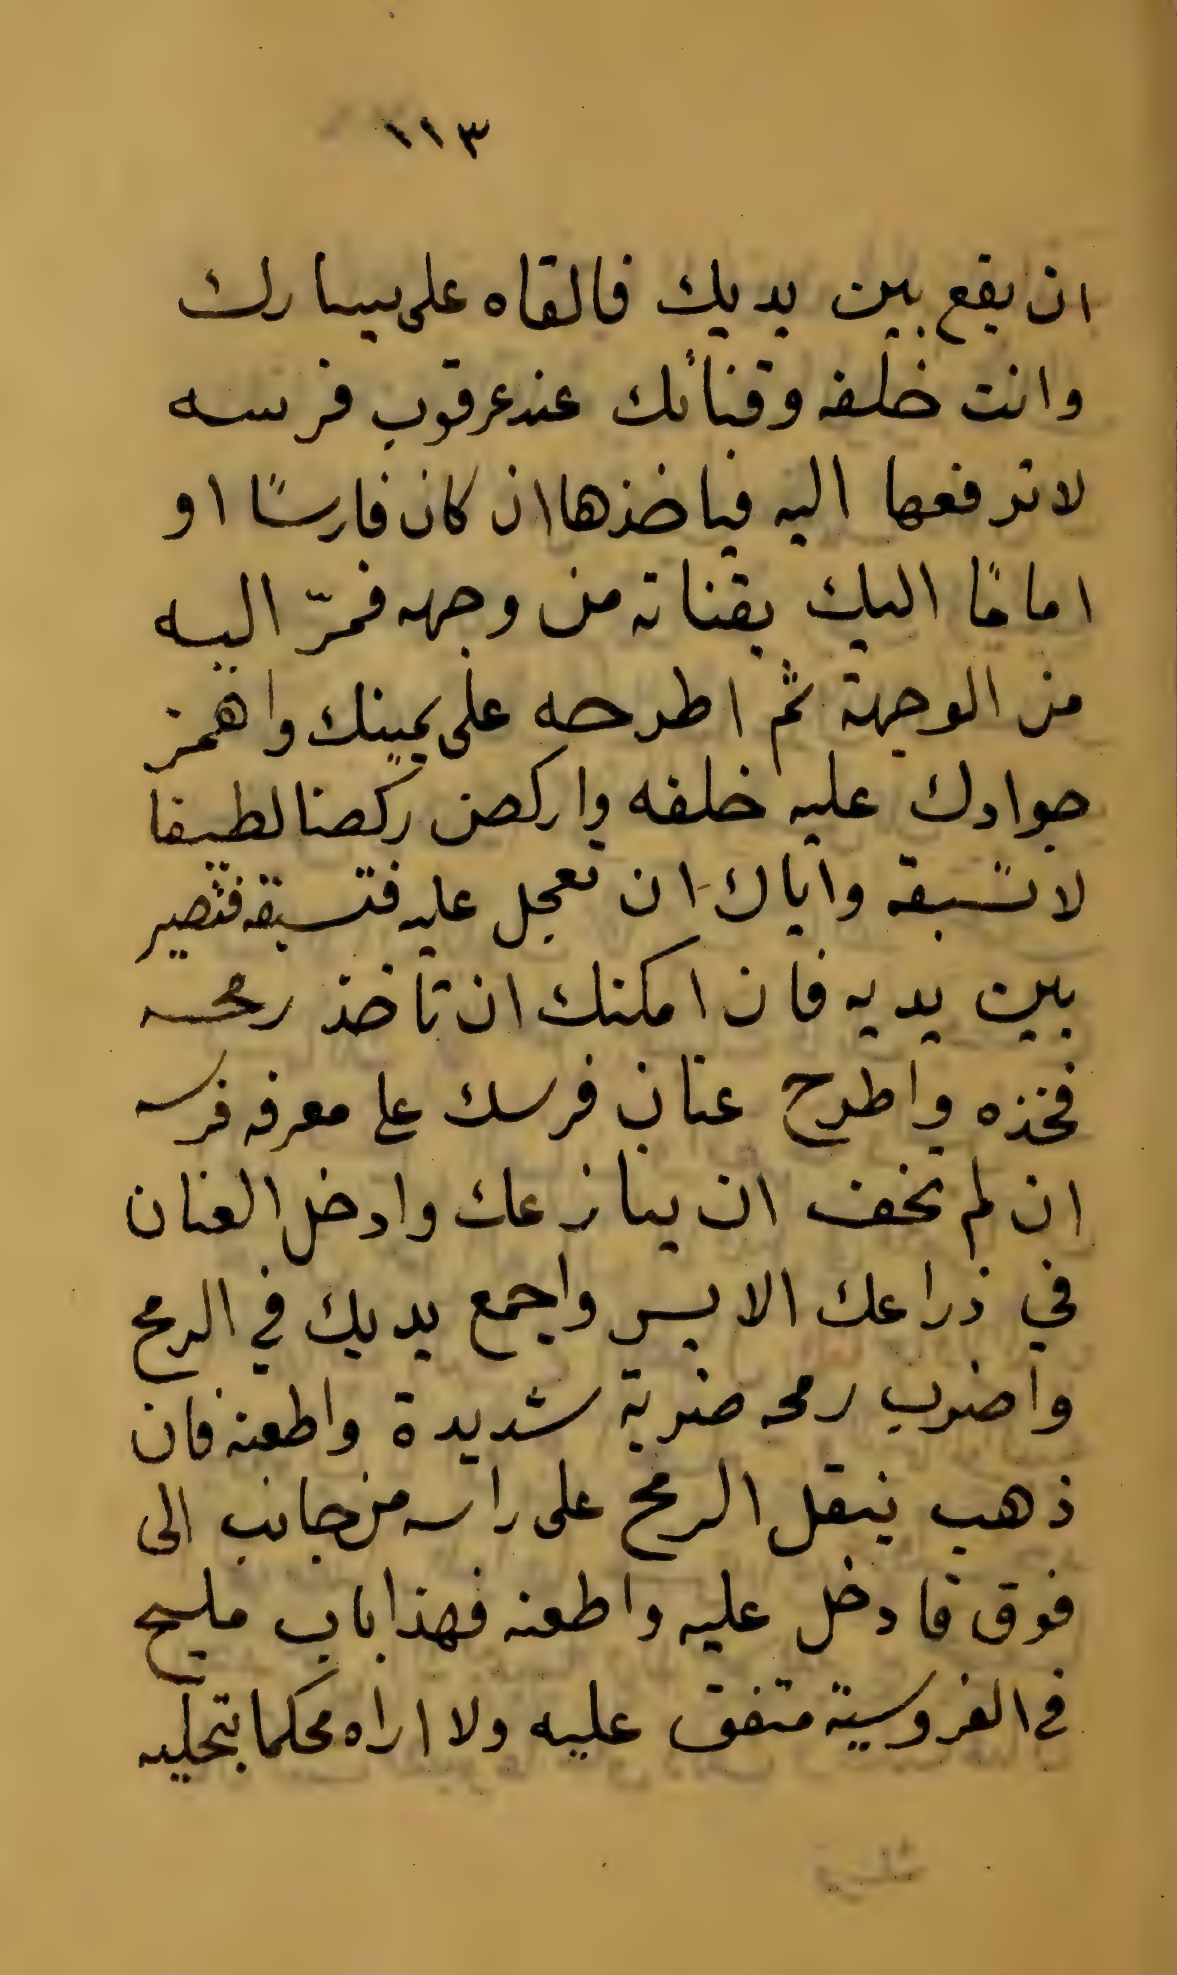 ١١٣
ان يقع بين يديك فالقاه على يسارك
وانت خلفه وقناتك عند عرقوب فرسه
لا ترفعها اليه فياخذها ان كان فارسًا او
امامًا اليك بقناته من وجهه فمرّ اليه
من الوجهة ثم اطرحه على يمينك واهمز
جوادك عليه خلفه واركض ركضا لطيفا
لا تسبقه واياك ان تعجل عليه فتسبقه فتصير
بين يديه فان امكنك ان تأخذ رمحه
فخذه واطرح عنان فرسك على معرفه فرسه
ان لم تخف ان ينازعك وادخل العنان
في ذراعك الايسر واجمع يديك في الرمح
واضرب رمحه ضربة شديدة واطعنه فان
ذهب ينقل الرمح على راسه من جانب الى
فوق فادخل عليه واطعنه فهذا باب مليح
في الفروسية متفق عليه ولا اراه محكما بتحليه